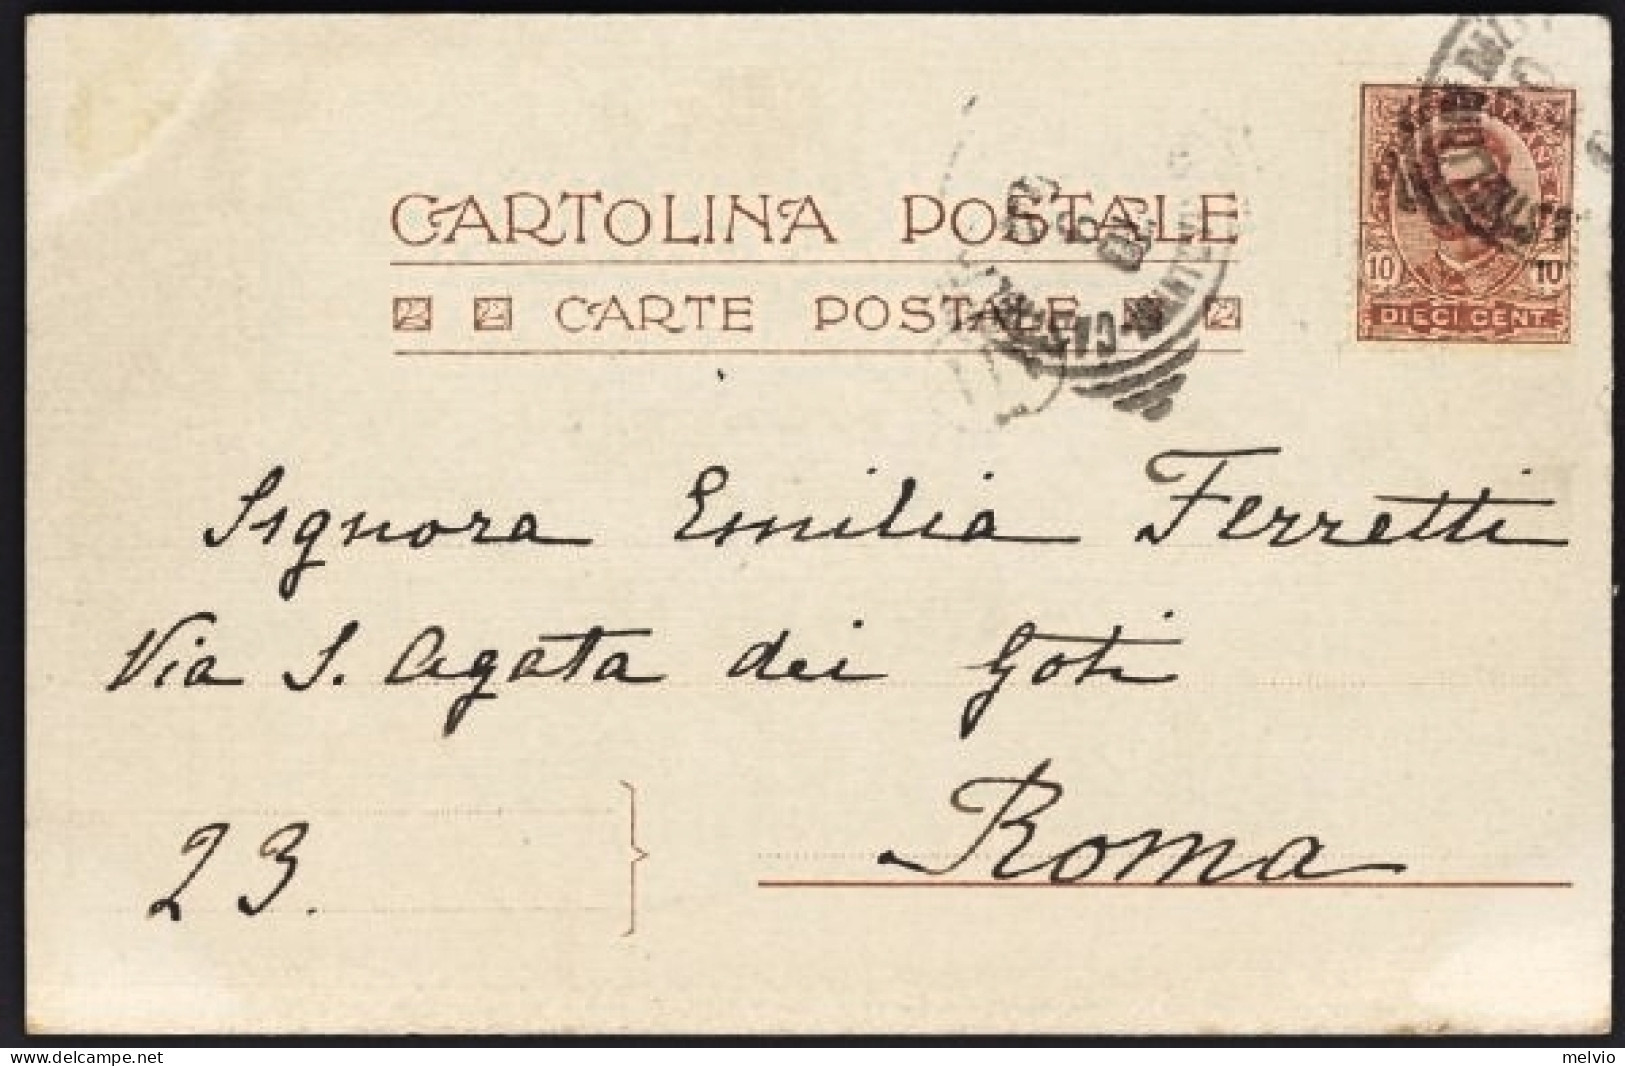 CARTOLINA POSTALE
CARTE POSTALE
10 10
DIECI CENT.
Signora Emilia Ferretti
Via S. Agata dei Goti
Roma
23.
melvio